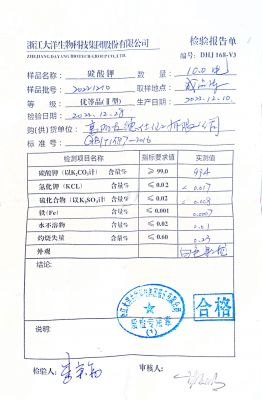 浙江大洋生物科技集团股份有限公司 检验报告单
ZHEJIANG DAYANG BIOTECH GROUP CO., LTD. 编号: DHJ 168-V3
样品名称: 碳酸钾 数量: 10.0吨
样品批号: 20221210 取样地点: 成品库
等级: 优等品(Ⅱ型) 生产日期: 2022.12.10
检验日期: 2022.12.28
购(供)货单位:
标准号: 1587-2016
检测项目名称 指标要求值 实测值
碳酸钾(以K₂CO₃计) 含量% ≥ 99.0 99.4
氯化钾(KCL) 含量% ≤ 0.02 0.017
硫化合物(以K₂SO₄计) 含量% ≤ 0.02 0.009
铁(Fe) 含量% ≤ 0.001 0.0003
水不溶物 含量% ≤ 0.02 0.01
灼烧失量 含量% ≤ 0.60 0.23
外观 白色
结论:
合格
检验专用章
(1)
说明:
检验人: 审核人: